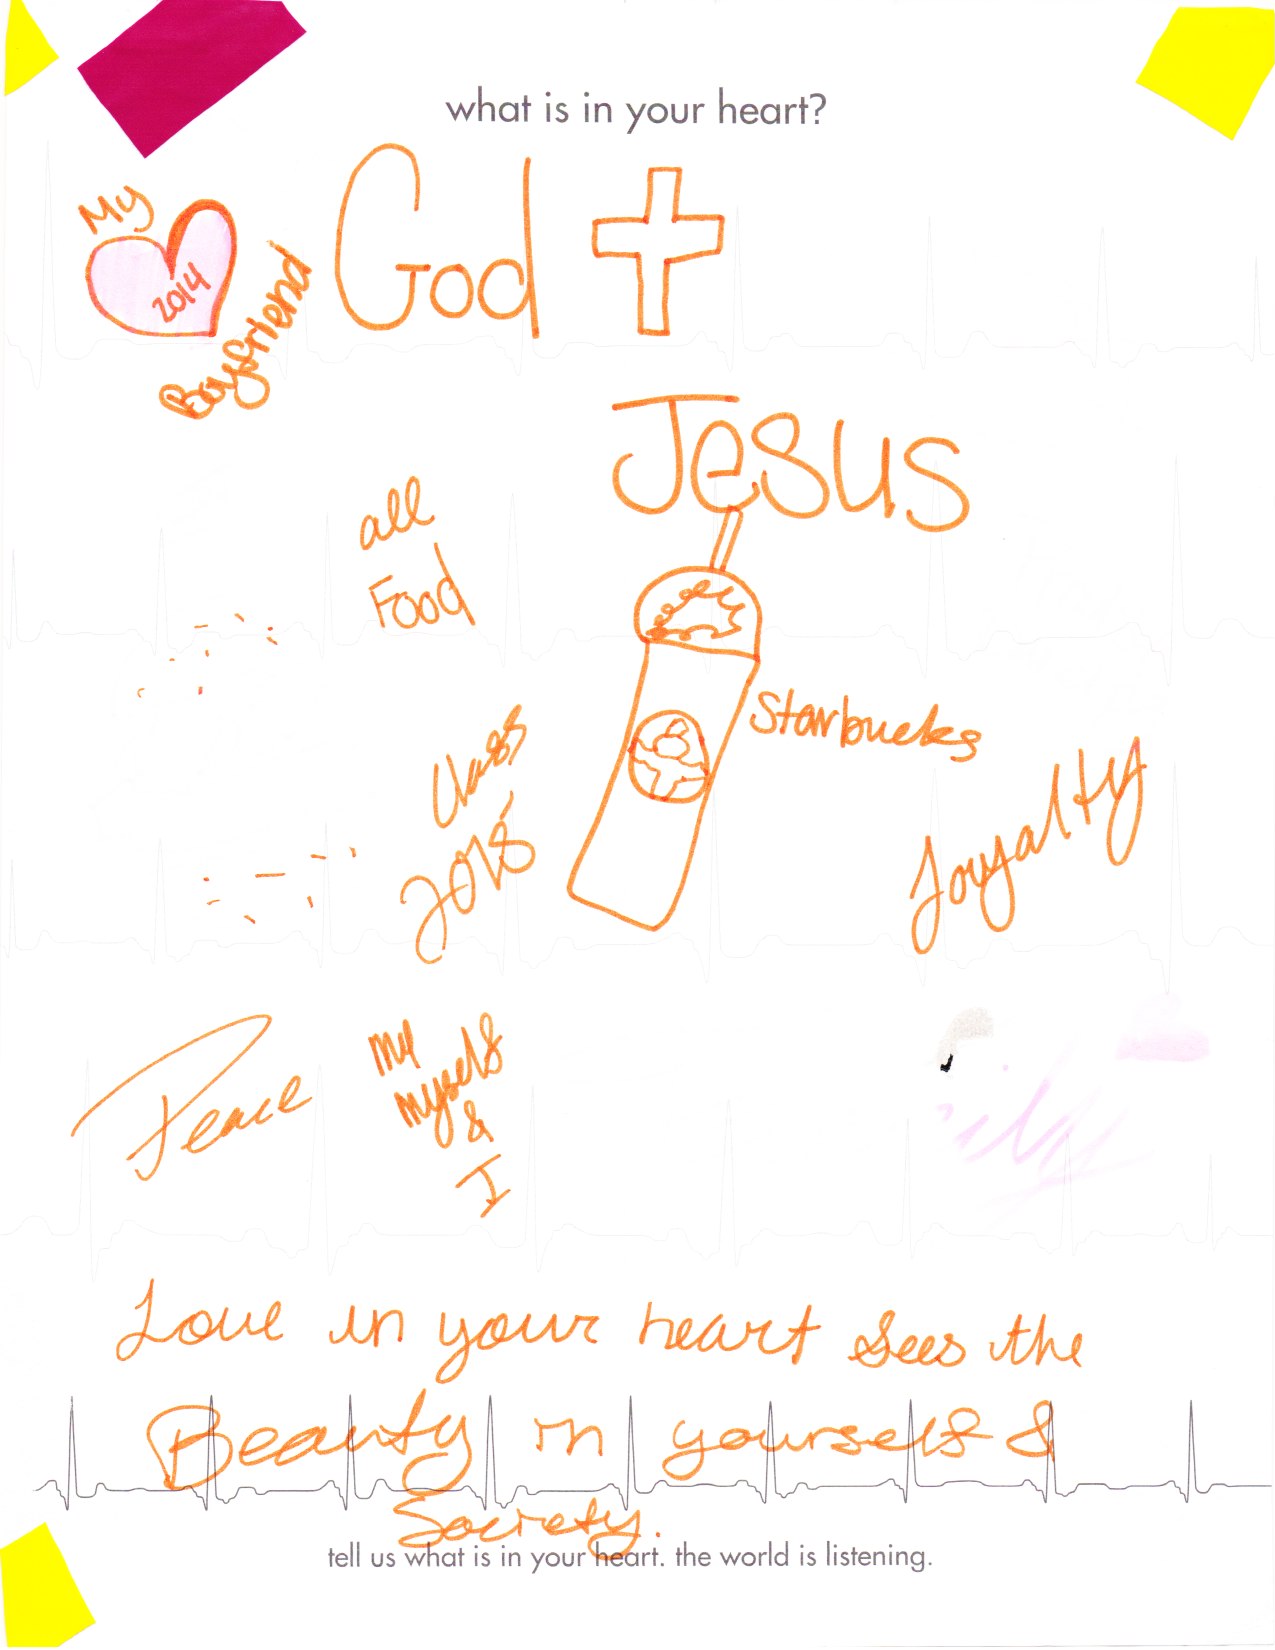 what is in your heart?
My
2014
Boyfriend
God
Jesus
all
Food
Starbucks
Class
2018
Loyalty
Peace
me
myself
&
I
Love in your heart sees the
Beauty in yourself &
Society.
tell us what is in your heart. the world is listening.